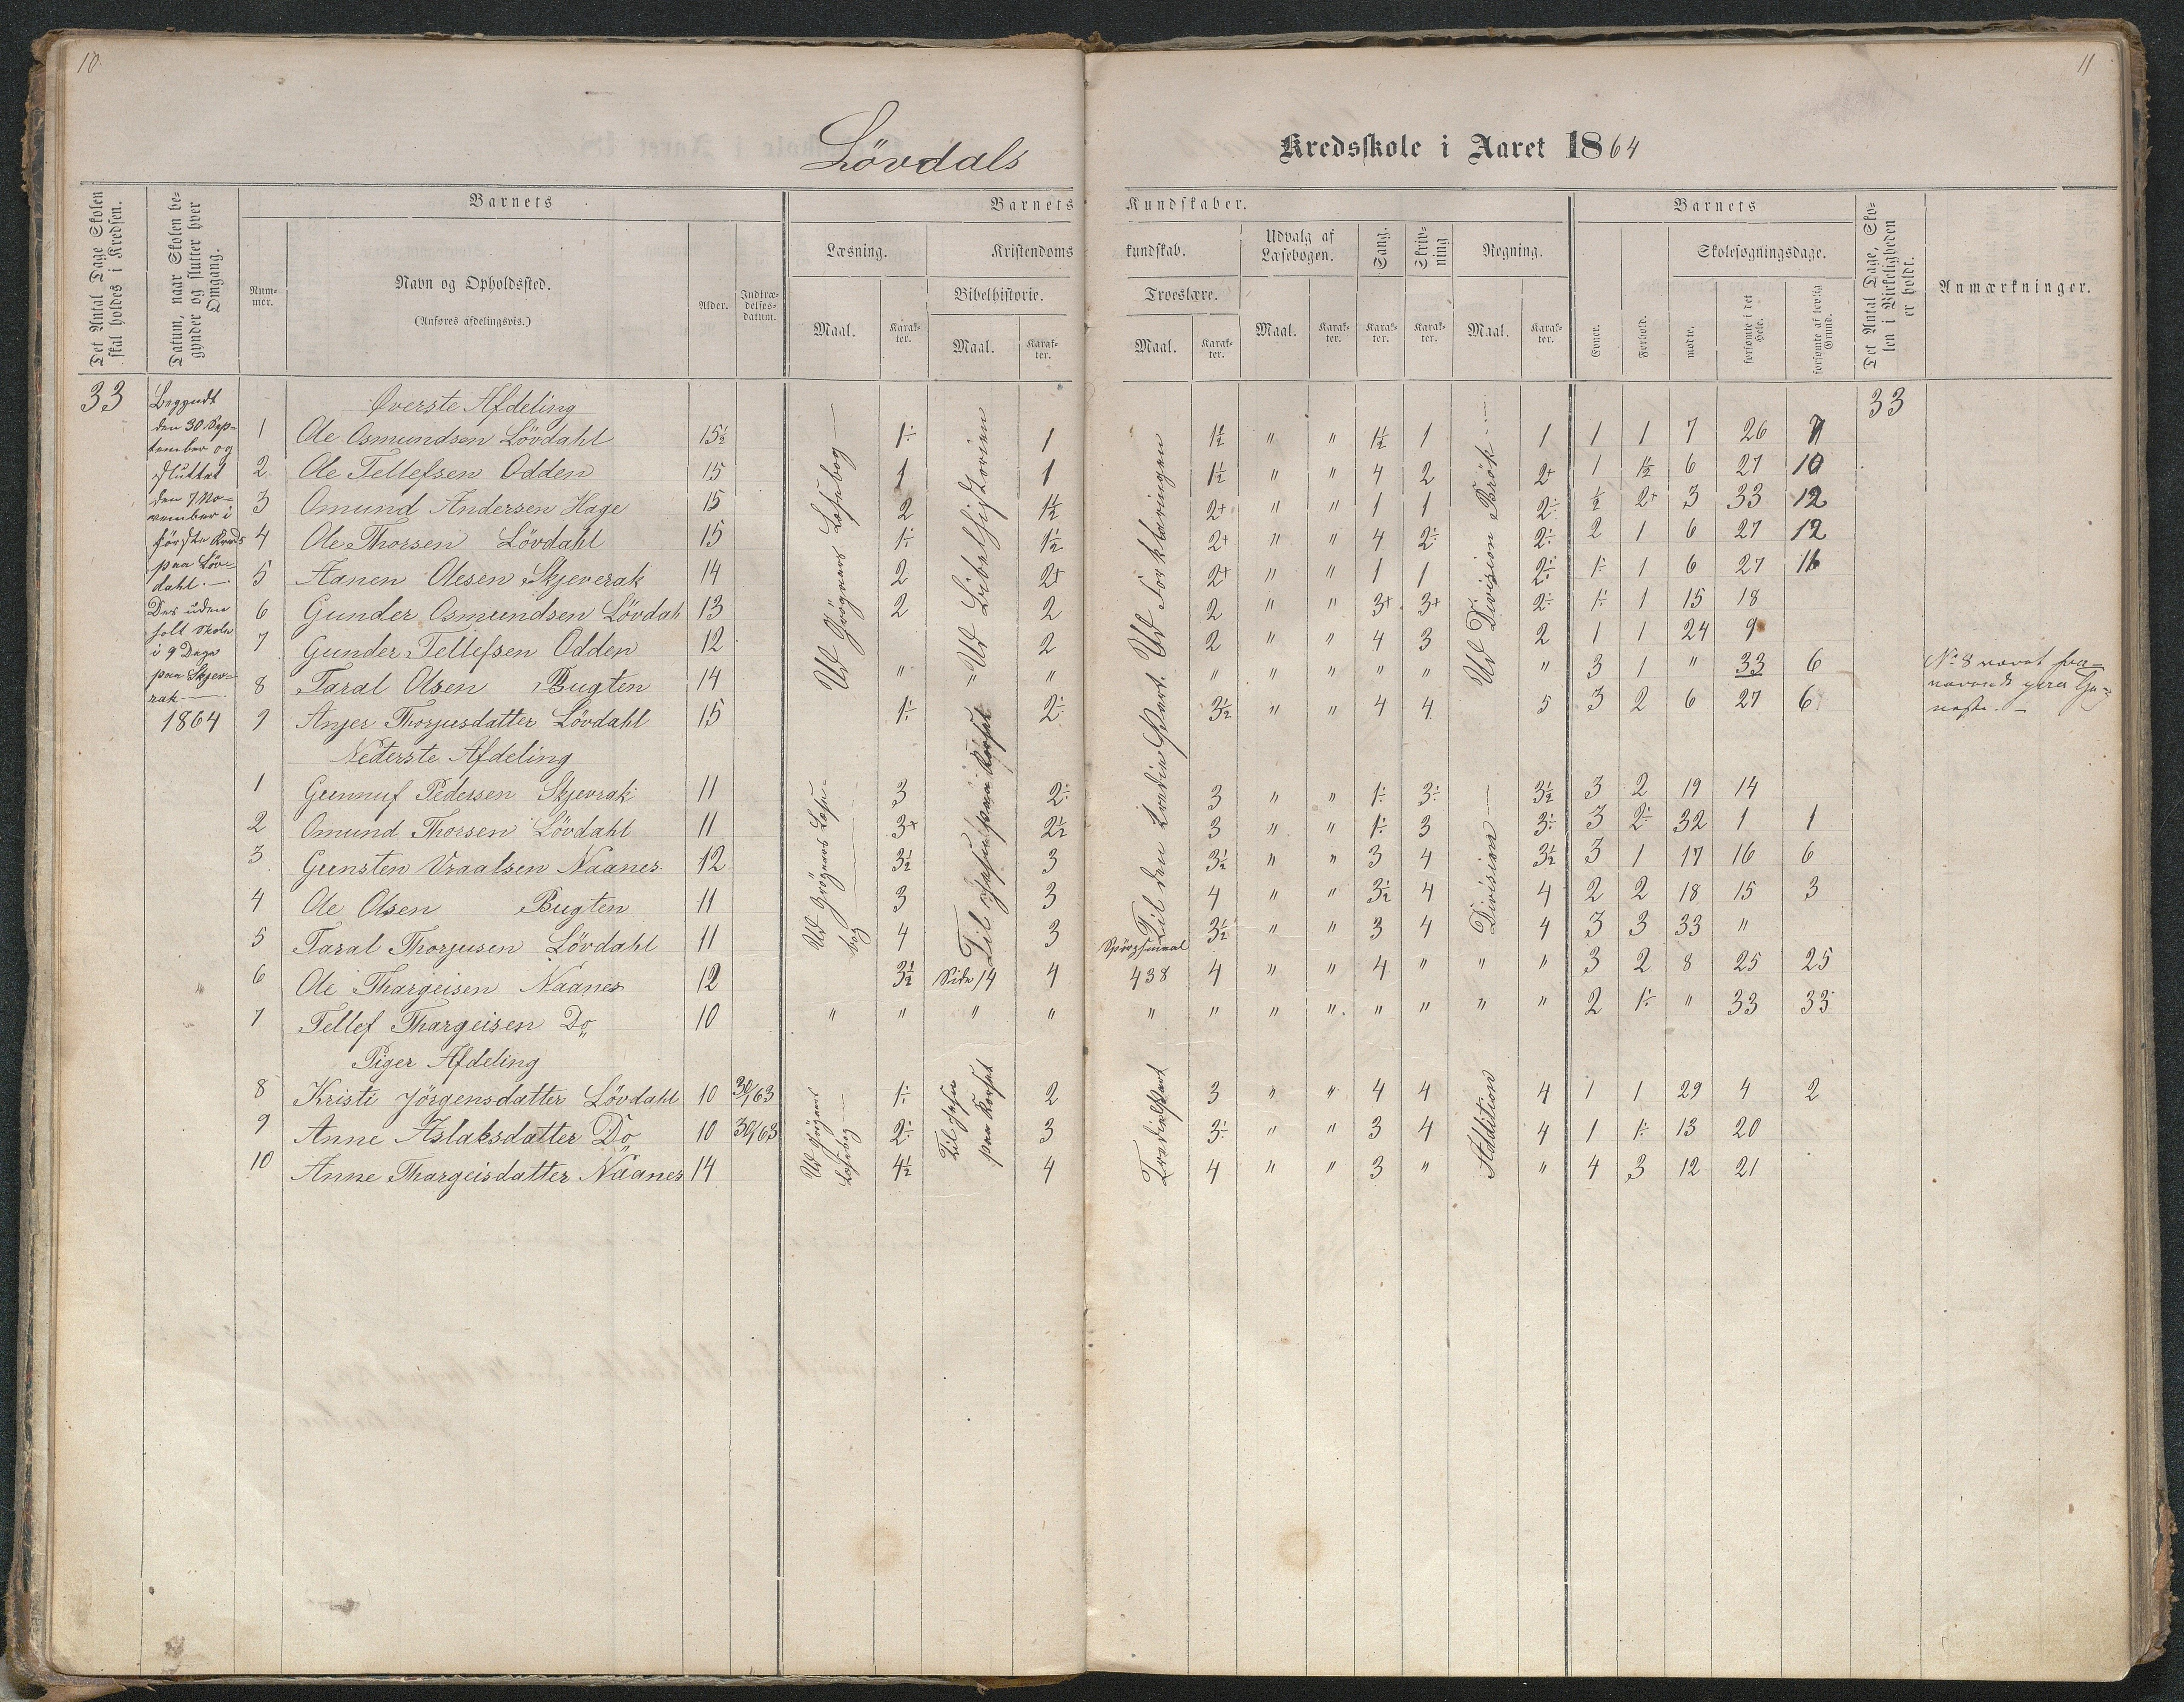 10
11
Lövdals Kredsskole i Aaret 1864
Det Antal Dage Skolen skal holdes i Kredsen.
Datum, naar Skolen begynder og slutter hver Omgang.
Barnets
Nummer.
Navn og Opholdssted.
(Anføres afdelingsvis.)
Alder.
Indtrædelsesdatum.
Barnets Kundskaber.
Læsning.
Kristendomskundskab.
Udvalg af Læsebogen.
Sang.
Skrivning
Regning.
Bibelhistorie.
Troeslære.
Maal.
Karakter.
Maal.
Karakter.
Maal.
Karakter.
Maal.
Karakter.
Karakter.
Karakter.
Maal.
Karakter.
Barnets
Evner.
Forhold.
Skolesøgningsdage.
mødte.
forsømte i det Hele.
forsømte af lovlig Grund.
Det Antal Dage, Skolen i Virkeligheden er holdt.
Anmærkninger.
33
Begyndt
den 30 Sep-
tember og
sluttet
den 7 No-
vember i
første Kreds
paa Löv-
dahl. —
Des uden
holt Skole
i 9 Dage
paa Skjev-
rak
1864
Øverste Afdeling 33
1 Ole Osmundsen Lövdahl 15½ 1÷ 1 1½ " " 1½ 1 1 1 1 7 26 7
2 Ole Tellefsen Odden 15 1 1 1½ " " 4 2 2+ 1 1½ 6 27 10
3 Omund Andersen Hage 15 2 1½ 2+ " " 1 1 2÷ ½ 2+ 3 33 12
4 Ole Thorsen Lövdahl 15 1÷ 1½ 2+ " " 4 2÷ 2÷ 2 1 6 27 12
5 Aanen Olesen Skjeverak 14 2 2+ 2+ " " 1 1 2÷ 1÷ 1 6 27 16
6 Gunder Osmundsen Lövdah 13 2 2 2 " " 3+ 3+ 2÷ 1÷ 1 15 18
7 Gunder Tellefsen Odden 12 2 2 " " 4 3 2 1 1 24 9
8 Taral Olsen Bugten 14 " " " " " " " " 3 1 " 33 6
9 Anjer Thorjusdatter Lövdahl 15 1÷ 2÷ 3½ " " 4 4 5 3 2 6 27 6
Ud Grögaars Læsebog —
Ud Bibelhistorien
Ud Forklaringen
Ud Division Brök —
No 8 været fra-
værende
Nederste Afdeling
1 Gunnuf Pedersen Skjevrak 11 3 2÷ 3 " " 1÷ 3÷ 3½ 3 2 19 14
2 Omund Thorsen Lövdahl 11 3+ 2½ 3 " " 1÷ 3 3÷ 3 2÷ 32 1 1
3 Gunsten Vraalsen Naanes 12 3½ 3 3½ " " 3 4 3½ 3 1 17 16 6
4 Ole Olsen Bugten 11 3 3 4 " " 3½ 4 4 2 2 18 15 3
5 Taral Thorjusen Lövdahl 11 4 3 3½ " " 3 4 4 3 3 33 "
6 Ole Thargeisen Naanes 12 3½ Side 14 4 Spörgsmaal 438 4 " " 4 " " " 3 2 8 25 25
7 Tellef Thargeisen Do 10 " " " " " " " " " " " " 2 1÷ " 33 33
Ud Grögaars Læsebog
Til Jesu paa Korset
Til den tredie Part.
Division —
Piger Afdeling
8 Kristi Jörgensdatter Lövdahl 10 30/63 1÷ 2 3 " " 4 4 4 1 1 29 4 2
9 Anne Aslaksdatter Do 10 30/63 2÷ 3 3÷ " " 3 4 4 1 1÷ 13 20
10 Anne Thargeisdatter Naanes 14 4½ 4 4 " " 3 " " 4 3 12 21
Ud Grögaars Læsebog —
Til Jesu paa Korset
Tredie Part
Addition